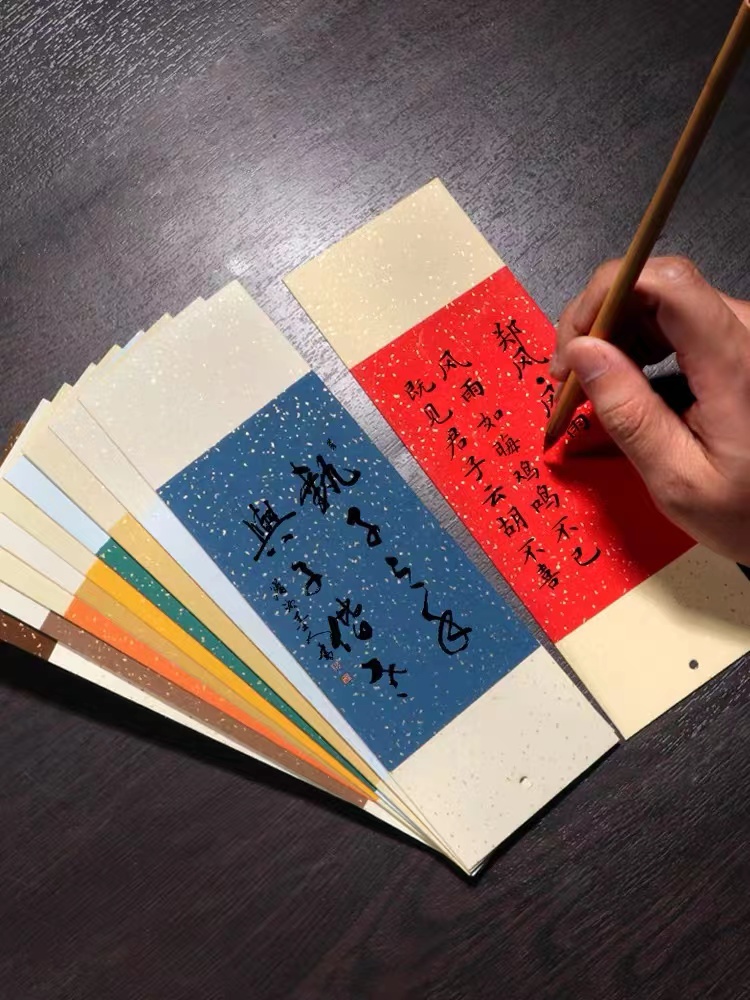 郑风·风雨
风雨如晦鸡鸣不已
既见君子云胡不喜
執子之手
與子偕老